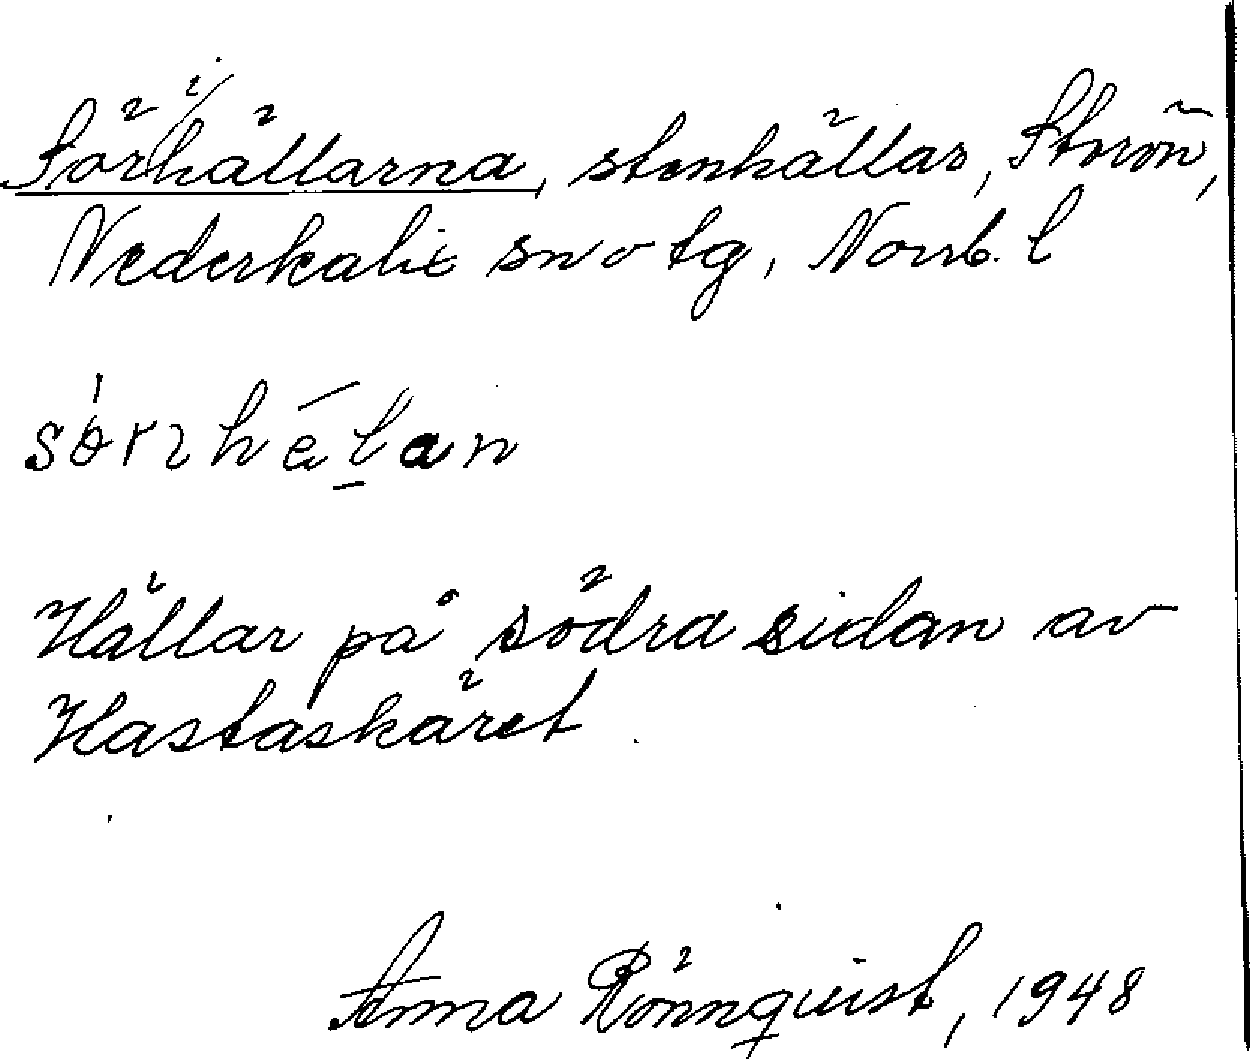 Sörhällarna, stenhällar, Storön,
Nederkalix sn o tg, Norrb. l
Hällar på södra sidan av
Hastaskäret
Anna Rönnquist, 1948